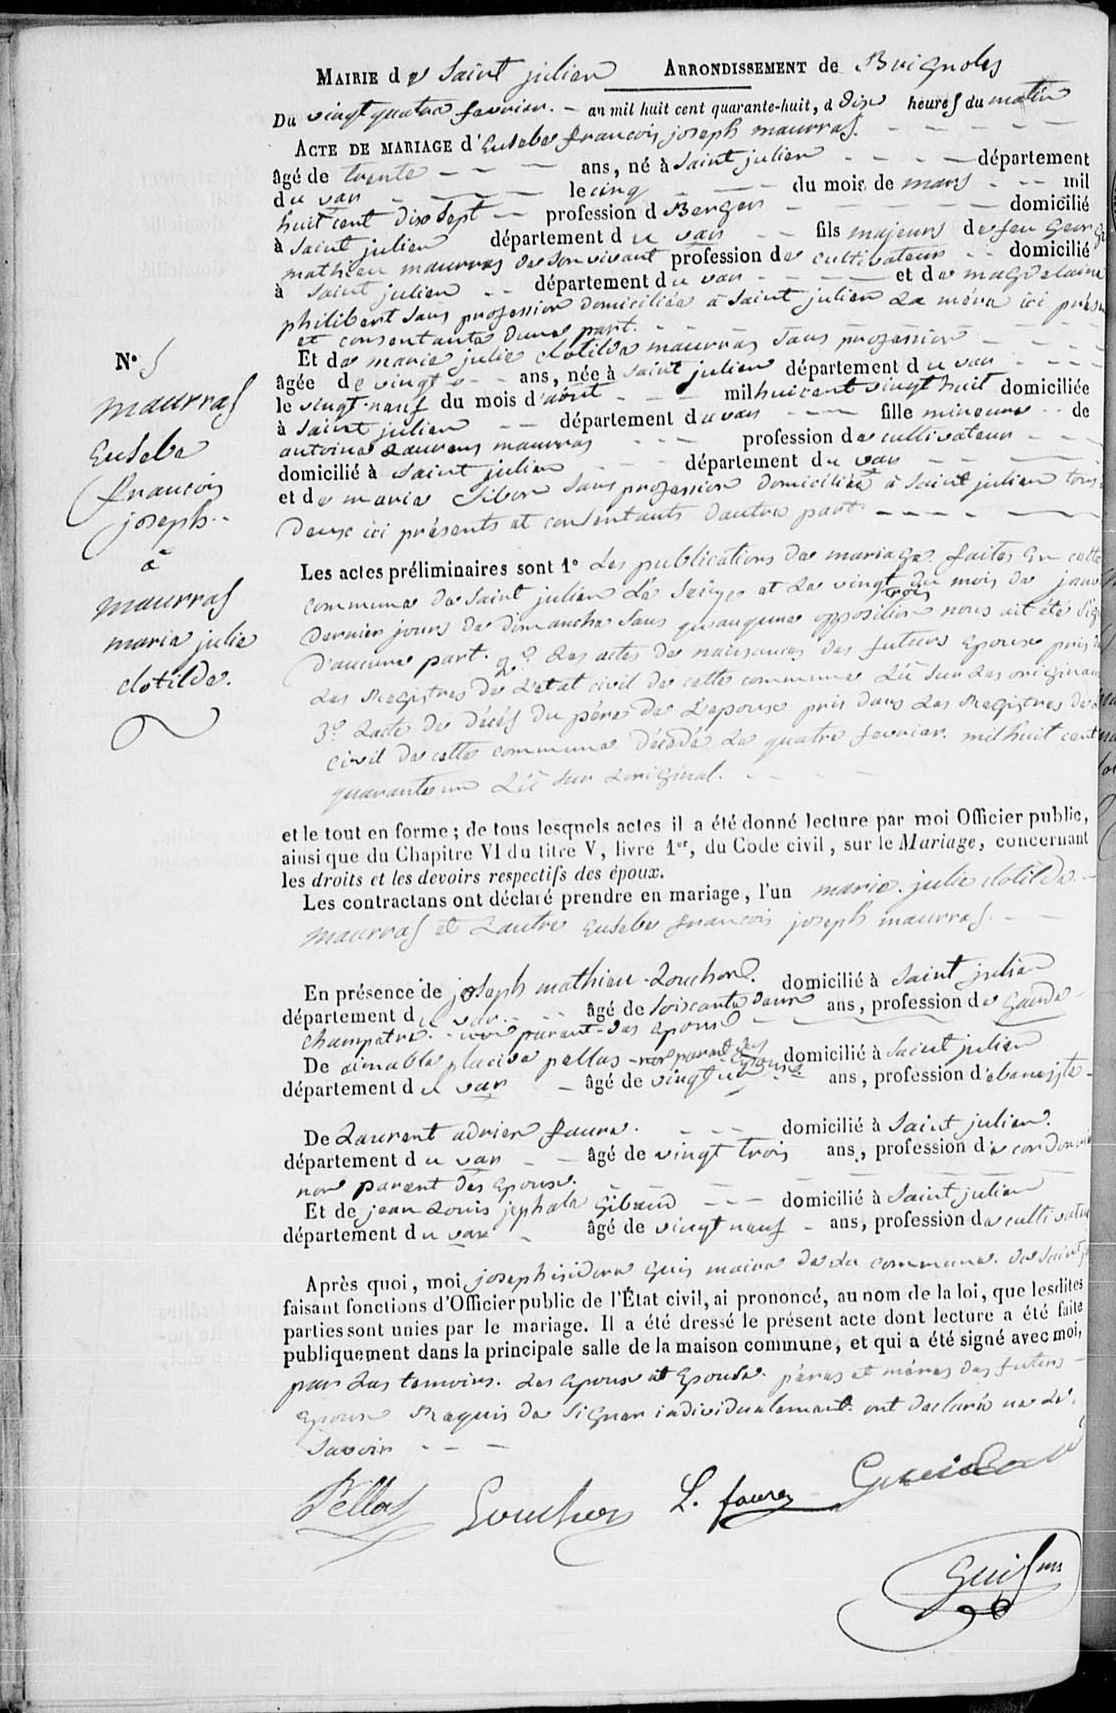 MAIRIE de Saint julien ARRONDISSEMENT de Brignoles
Du vingt quatre fevrier. – an mil huit cent quarante-huit, à Dix heures du matin
ACTE DE MARIAGE d'Eusebe françois joseph maurras.
âgé de trente ans, né à Saint julien département
du var le cinq du mois de mars mil
huit cent Dix Sept profession de Berger domicilié
à Saint julien département du var fils majeur de feu George
mathieu maurras de son vivant profession de cultivateur domicilié
à Saint julien département du var et de magdelaine
philibert sans profession domiciliée à Saint julien La mère ici
et consentante d'une part.
Et de marie julie clotilde maurras sans profession
âgée de vingt ans, née à Saint julien département du var
le vingt-neuf du mois d'aout mil huit cent vingt huit domiciliée
à Saint julien département du var fille mineure de
antoine Laurens maurras profession de cultivateur
domicilié à Saint julien département du var
et de marie Sibon sans profession domiciliée à Saint julien tous
Deux ici présents et consentants d'autre part
N° 5
maurras
Eusebe
françois
joseph
à
maurras
marie julie
clotilde.
Les actes préliminaires sont 1° Les publications de mariage faites en cette
commune de Saint julien Le Seize et Le vingt trois du mois de
Dernier jours de Dimanche Sans qu'aucune opposition nous ait été
d'aucune part. 2° Les actes de naissances des futurs Epoux pris
Les Registres de L'etat civil de cette commune Lu sur Les
3° L'acte de Décès du père de L'epoux pris dans Les Registres de
civil de cette commune Décédé Le quatre fevrier mil huit cent
quarante un Lu sur L'original.
et le tout en forme ; de tous lesquels actes il a été donné lecture par moi Officier public,
ainsi que du Chapitre VI du titre V, livre 1er, du Code civil, sur le Mariage, concernant
les droits et les devoirs respectifs des époux.
Les contractans ont déclaré prendre en mariage, l'un marie julie clotilde
maurras et L'autre Eusebe françois joseph maurras.
En présence de joseph mathieu Gouchon domicilié à Saint julien
département du var âgé de Soixante deux ans, profession de Garde
champetre non parent des epoux
De aimable placide pellas non parent des Epoux domicilié à Saint julien
département du var âgé de vingt ans, profession d'ebeniste
De Laurent adrien faure domicilié à Saint julien
département du var âgé de vingt trois ans, profession de
non parent des Epoux.
Et de jean Louis Gibaud domicilié à Saint julien
département du var âgé de vingt neuf ans, profession de
Après quoi, moi joseph isidore Guis maire de La commune de Saint
faisant fonctions d'Officier public de l'État civil, ai prononcé, au nom de la loi, que lesdites
parties sont unies par le mariage. Il a été dressé le présent acte dont lecture a été faite
publiquement dans la principale salle de la maison commune, et qui a été signé avec moi,
par Les temoins. Les epoux et Epouse pères et mères des futurs
Epoux Requis de Signer individuellement ont declaré ne Le
Savoir
Pellas Gouchon L. faure
Guis